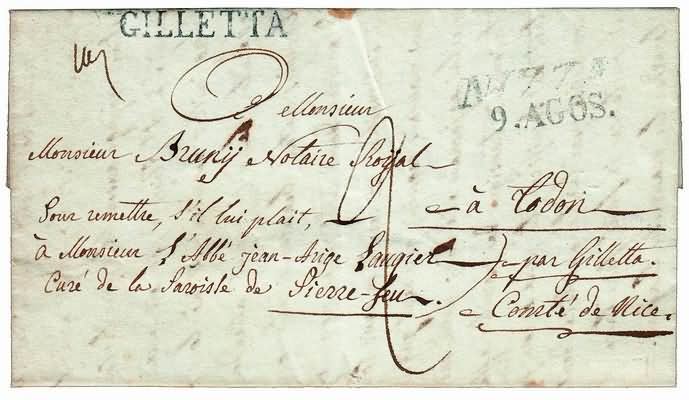 GILLETTA
NIZZA
9. AGOS.
à Monsieur
Monsieur Brunÿ Notaire Royal
à Todon
Pour remettre, s'il lui plait,
à Monsieur L'Abbé jean-Ange Laugier
par Gilletta.
Curé de la Paroisse de Pierre-feu.
Comté de Nice.
2